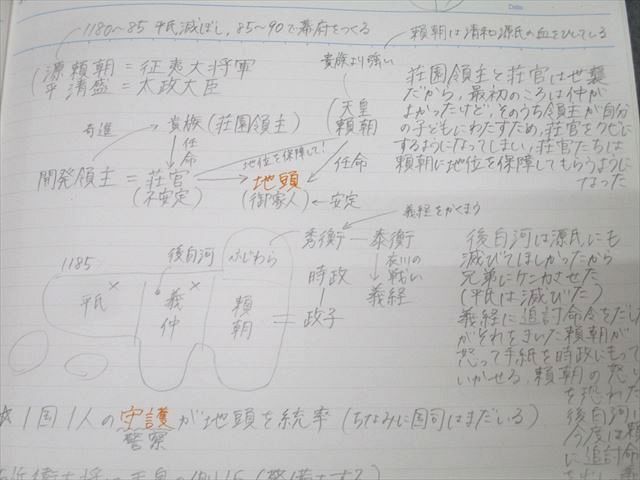 Date
1180～85 平氏滅ぼし、85～90で幕府をつくる
頼朝は清和源氏の血をひいている
源頼朝＝征夷大将軍
平清盛＝太政大臣
貴族より強い
天皇
頼朝
寄進
貴族（荘園領主）
任命
地位を保障して!
任命
開発領主＝荘官
（不安定）
地頭
（御家人）←安定
荘園領主と荘官は世襲
だから、最初のころは仲が
よかったけど、そのうち領主が自分
の子どもにわたすため、荘官をクビに
するようになってしまい、荘官たちは
頼朝に地位を保障してもらうように
なった
義経をかくまう
秀衡ー泰衡
衣川の
戦い
義経
1185
後白河
ふじわら
平氏
義仲
頼朝
時政
政子
後白河は源氏にも
滅びてほしかったから
兄弟にケンカさせた
（平氏は滅びた）
義経に追討命令をだし
がそれをきいた頼朝が
怒って手紙を時政にもって
いかせる、頼朝の怒り
を恐れた
後白河
今度は頼
に追討命
☆1国1人の守護が地頭を統率（ちなみに国司はまだいる）
警察